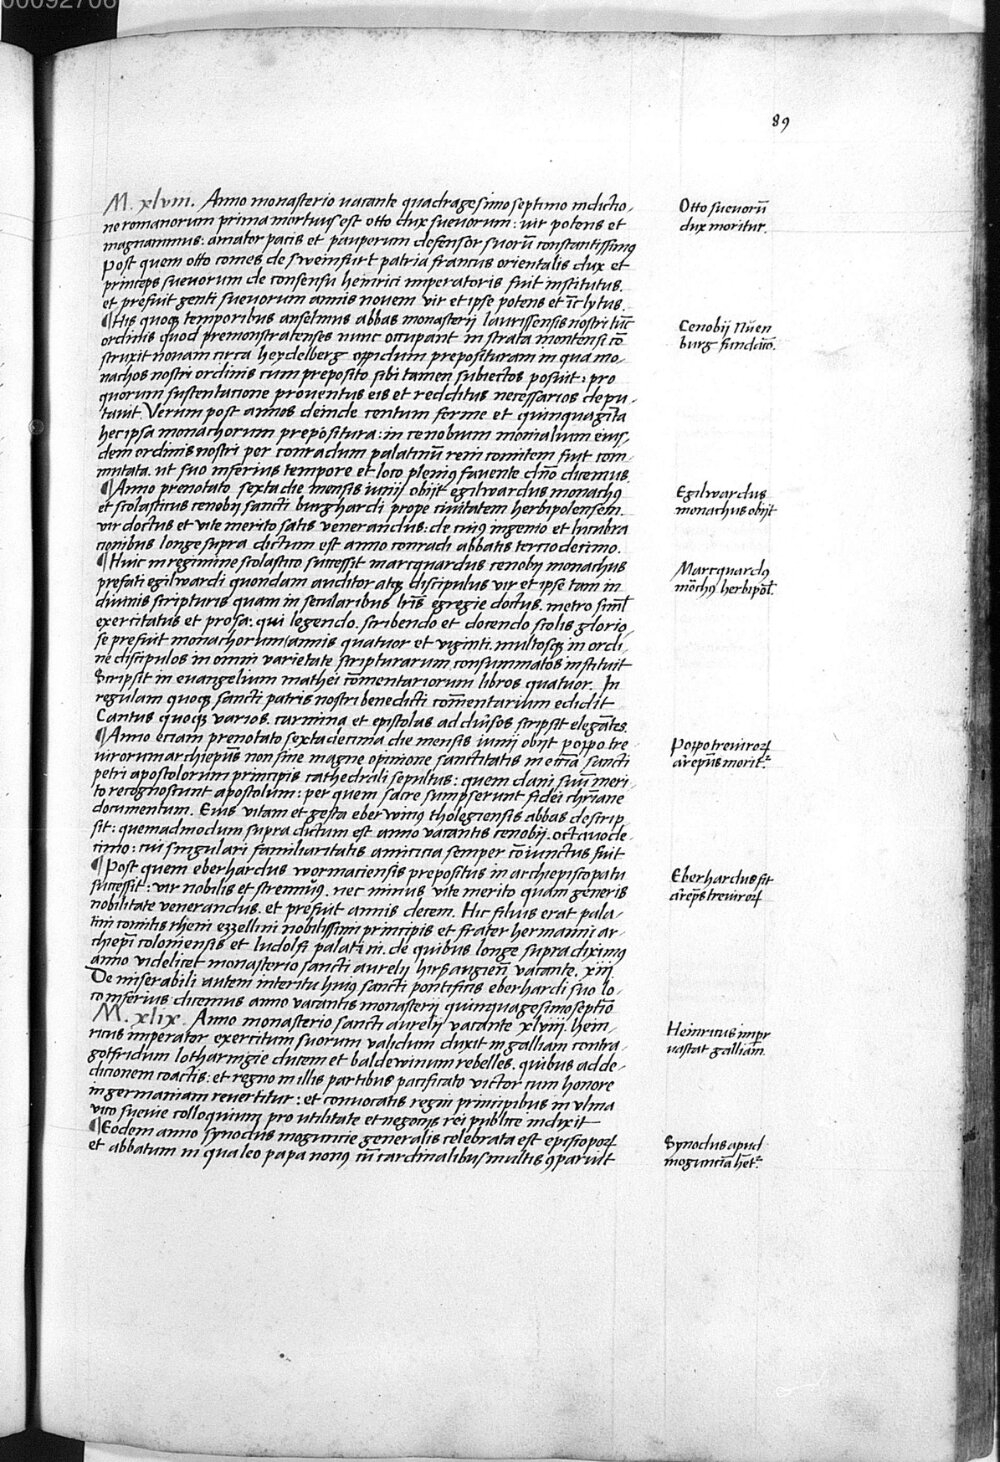 89
M. xlviii. Anno monasterio uacante quadragesimo septimo indictio-
ne romanorum prima mortuus est otto dux sueuorum: uir potens et
magnanimus: amator pacis et pauperum defensor suorū constantissimꝰ
Post quem otto comes de sweinfurt patria francus orientalis dux et
princeps sueuorum de consensu heinrici imperatoris fuit institutus.
et prefuit genti sueuorum annis nouem vir et ipse potens et īclytus.
¶His quoqꝫ temporibus anselmus abbas monasterij laurissensis nostri tūc
ordinis quod premonstratenses nunc occupant in strata montensi cō
struxit nonam circa heydelberg oppidum preposituram in qua mo-
nachos nostri ordinis cum preposito sibi tamen subiectos posuit: pro
quorum sustentacione prouentus eis et redditus necessarios depu-
tauit. Verum post annos deinde centum ferme et quinquagīta
hec ipsa monachorum prepositura: in cenobium monialium eius-
dem ordinis nostri per conradum palatinū reni comitem fuit com-
mutata. ut suo inferius tempore et loco plenius fauente dn̄o dicemus.
¶Anno prenotato sexta die mensis iunij obijt egilwardus monachꝰ
et scolasticus cenobij sancti burghardi prope ciuitatem herbipolensem.
vir doctus et vite merito satis venerandus: de cuiꝰ ingenio et lucubra
cionibus longe supra dictum est anno conradi abbatis terciodecimo.
¶Huic in regimine scolastico successit marcquardus cenobij monachus
prefati egilwardi quondam auditor atqꝫ discipulus vir et ipse tam in
diuinis scripturis quam in secularibus lr̄is egregie doctus. metro siml̄
exercitatus et prosa: qui legendo. scribendo et docendo scolis glorio
se prefuit monachorum annis quatuor et viginti. multosqꝫ in ordi-
ne discipulos in omni varietate scripturarum consummatos instituit
Scripsit in euangelium mathei cōmentariorum libros quatuor. In
regulam quoqꝫ sancti patris nostri benedicti com̄entarium edidit
Cantus quoqꝫ varios. carmina et epistolas ad diu̓sos scripsit elegātes.
¶Anno eciam prenotato sextadecima die mensis iunij obijt poppo tre
uirorum archiepūs non sine magne opinione sanctitatis in ecc̄ia sancti
petri apostolorum principis cathedrali sepultus: quem dani suū meri-
to recognoscunt apostolum: per quem sacre sumpserunt fidei chr̄iane
documentum. Eius vitam et gesta eberwinꝰ tholegiensis abbas descrip
sit: quemadmodum supra dictum est anno vacantis cenobij. octauode-
cimo: cui singulari familiaritatis amicicia semper cōiunctus fuit
¶Post quem eberhardus wormaciensis prepositus in archiepiscopatu
successit: vir nobilis et strenuꝰ. nec minus vite merito quam generis
nobilitate venerandus. et prefuit annis decem. Hic filius erat pala-
tini comitis rheni ezzelini nobilissimi principis et frater hermanni ar-
chiepī coloniensis et ludolfi palatini. de quibus longe supra diximꝰ
anno videlicet monasterio sancti aurelij hirsaugien̄ vacante. xiij
De miserabili autem interitu huiꝰ sancti pontificis eberhardi suo lo-
co inferius dicemus anno vacantis monasterij quinquagesimoseptīo
M. xlix. Anno monasterio sancti aurelij vacante xlviij. hein-
ricus imperator exercitum suorum validum duxit in galliam contra-
gotfridum lotharingie ducem et baldewinum rebelles. quibus ad de-
dicionem coactis: et regno in illis partibus pacificato victor cum honore
in germaniam reuertitur: et conuocatis regni principibus in vlma
vico sueuie colloquium pro utilitate et negocijs rei publice indixit
¶Eodem anno synodus moguncie generalis celebrata est episcopoꝝ
et abbatum in qua leo papa nonꝰ cū cardinalibus multis ꝯparuit
Otto sueuorū
dux moritur.
Cenobij Nūen
burg fundacō.
Egilwardus
monachus obijt
Marcquardꝰ
mōchꝰ herbipol̄.
Poppo treuiroꝝ
arep̄us morit᷑.
Eberhardus fit
arep̄s treuiroꝝ
Heinricus impr
vastat galliam̄.
Synodus apud
mogunciā het᷑.